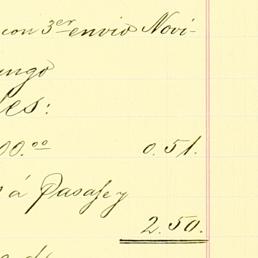 con 3er envio Novi-
ungo
les:
00.00 0.51.
s á Pasaje y
2.50.